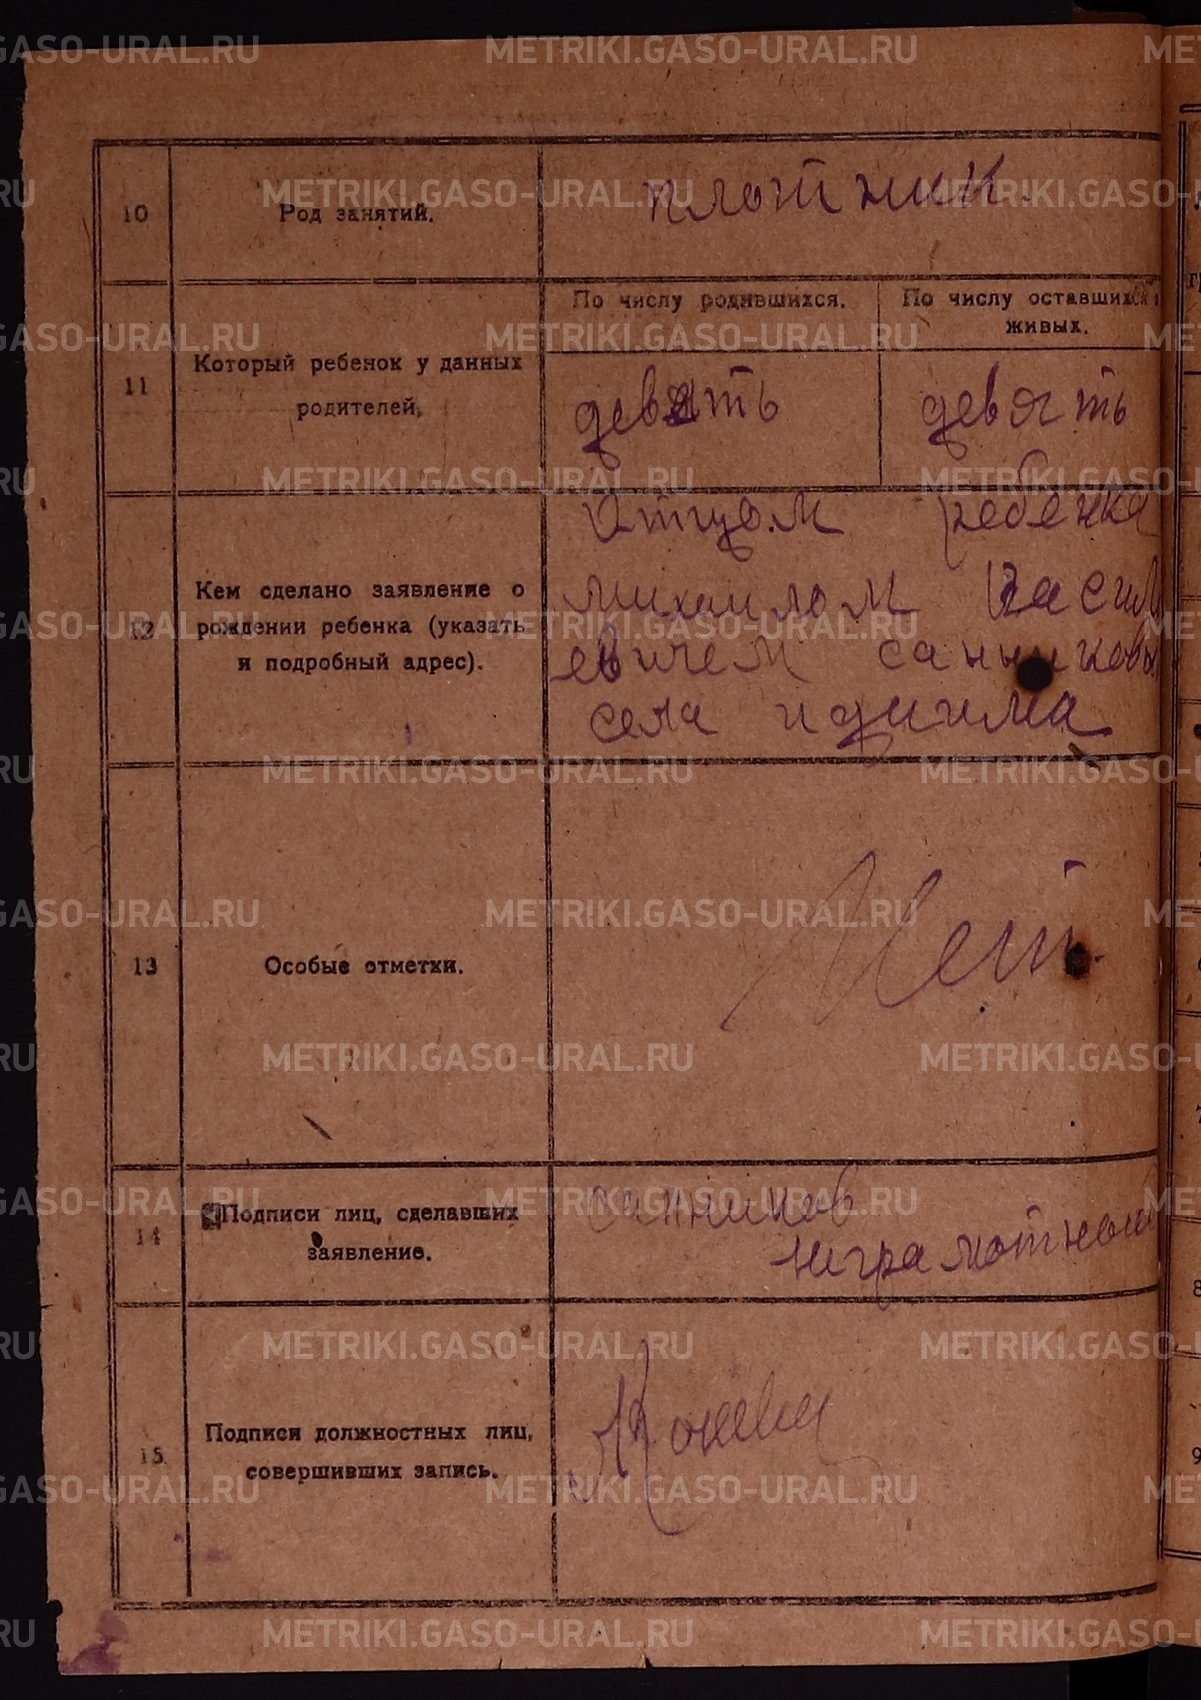 10
Род занятий.
плотник.
11
Который ребенок у данных
родителей,
По числу родившихся.
По числу оставшихся
живых.
девять
девять
12
Кем сделано заявление о
рождении ребенка (указать
и подробный адрес).
Отцом ребенка
михаилом Васил
евичем санниковы
села
13
Особые отметки.
Нет.
14
Подписи лиц, сделавших
заявление.
санников
играмотной
15
Подписи должностных лиц,
совершивших запись.
METRIKI.GASO-URAL.RU